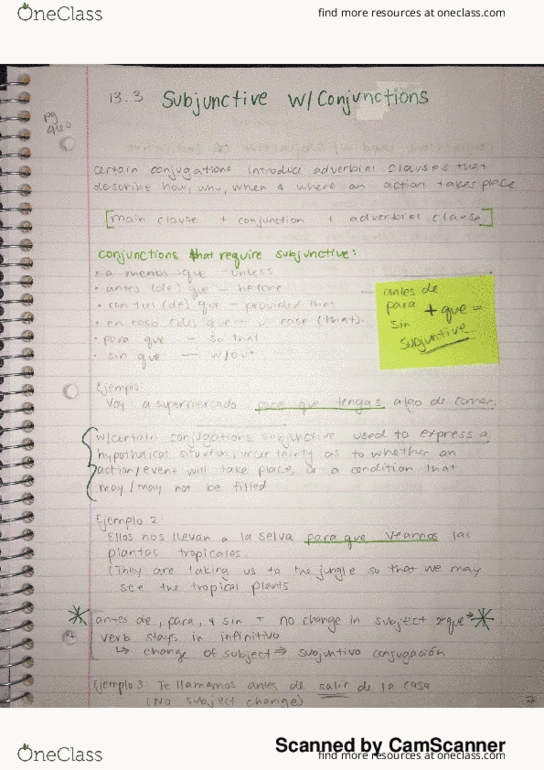 OneClass
find more resources at oneclass.com
13.3 Subjunctive w/Conjunctions
pg
460
certain conjugations introduce adverbial clauses that
describe how, why, when & where an action takes place
[main clause + conjunction + adverbial clause]
conjunctions that require subjunctive:
• a menos que - unless
• antes (de) que - before
• con tal (de) que - provided that
• en caso (de) que - in case (that)
• para que - so that
• sin que - w/out
antes de
para + que =
sin
subjuntive
Ejemplo
Voy a supermercado para que tengas algo de comer.
w/certain conjugations subjunctive used to express a
hypothetical situation, uncertainty as to whether an
action/event will take place, or a condition that
may/may not be filled
Ejemplo 2:
Ellos nos llevan a la selva para que veamos las
plantas tropicales.
(They are taking us to the jungle so that we may
see the tropical plants
* antes de, para, & sin + no change in subject → *
verb stays in infinitivo
↳ change of subject ⇒ subjuntivo conjugación
Ejemplo 3: Te llamamos antes de salir de la casa
(No subject change)
OneClass
Scanned by CamScanner
find more resources at oneclass.com